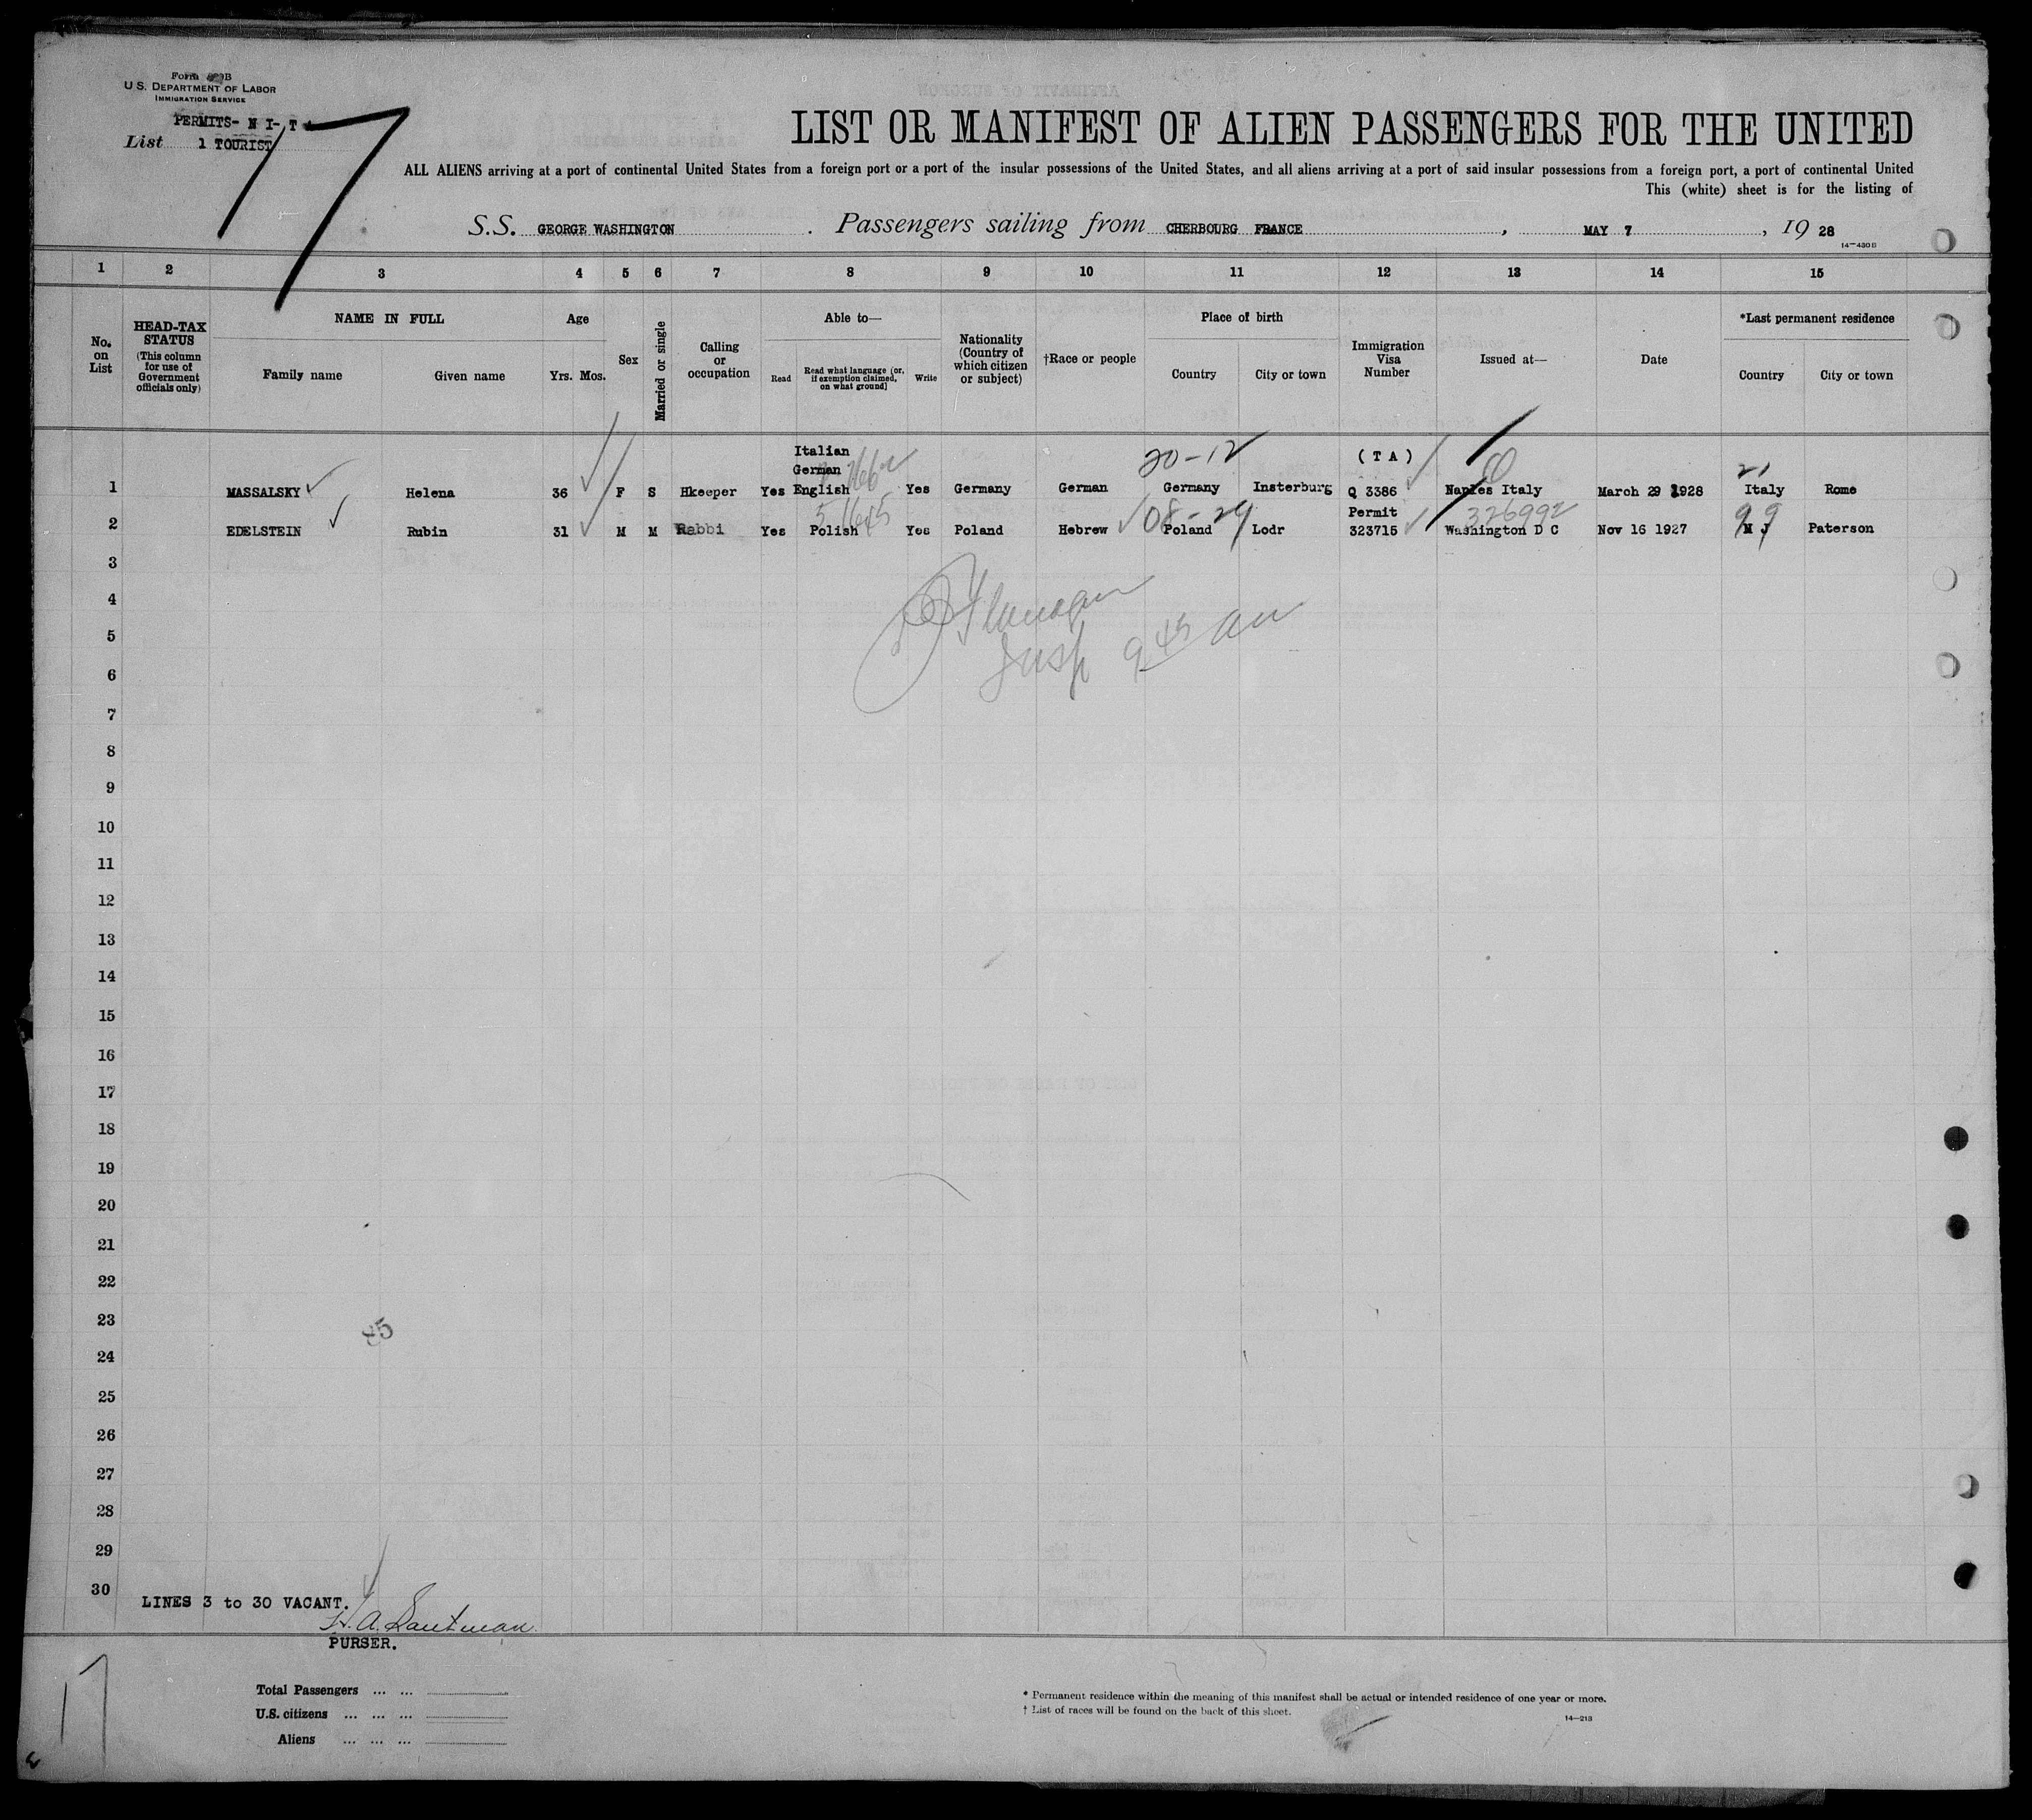 Form B
U.S. DEPARTMENT OF LABOR
IMMIGRATION SERVICE
PERMITS- N I- T
List 1 TOURIST
17
LIST OR MANIFEST OF ALIEN PASSENGERS FOR THE UNITED
ALL ALIENS arriving at a port of continental United States from a foreign port or a port of the insular possessions of the United States, and all aliens arriving at a port of said insular possessions from a foreign port, a port of continental United
This (white) sheet is for the listing of
S.S. GEORGE WASHINGTON . Passengers sailing from CHERBOURG FRANCE , MAY 7 , 19 28
14-430B
1 2 3 4 5 6 7 8 9 10 11 12 13 14 15
No. on List
HEAD-TAX STATUS
(This column for use of Government officials only)
NAME IN FULL
Family name Given name
Age
Yrs. Mos.
Sex
Married or single
Calling or occupation
Able to—
Read
Read what language (or, if exemption claimed, on what ground)
Write
Nationality (Country of which citizen or subject)
†Race or people
Place of birth
Country City or town
Immigration Visa Number
Issued at—
Date
*Last permanent residence
Country City or town
Italian 20-12 (T A)
German 21
1 MASSALSKY Helena 36 F S Hkeeper Yes English Yes Germany German Germany Insterburg Q 3386 Naples Italy March 29 1928 Italy Rome
5 1645 08-24 Permit 326992 99
2 EDELSTEIN Rubin 31 M M Rabbi Yes Polish Yes Poland Hebrew Poland Lodr 323715 Washington D C Nov 16 1927 N J Paterson
3
4 Flanagan
5
6 Insp 9 45 am
7
8
9
10
11
12
13
14
15
16
17
18
19
20
21
22
23
85
24
25
26
27
28
29
30
LINES 3 to 30 VACANT.
PURSER.
17
Total Passengers ... ...
U.S. citizens ... ... ...
Aliens ... ... ...
* Permanent residence within the meaning of this manifest shall be actual or intended residence of one year or more.
† List of races will be found on the back of this sheet.
14—213